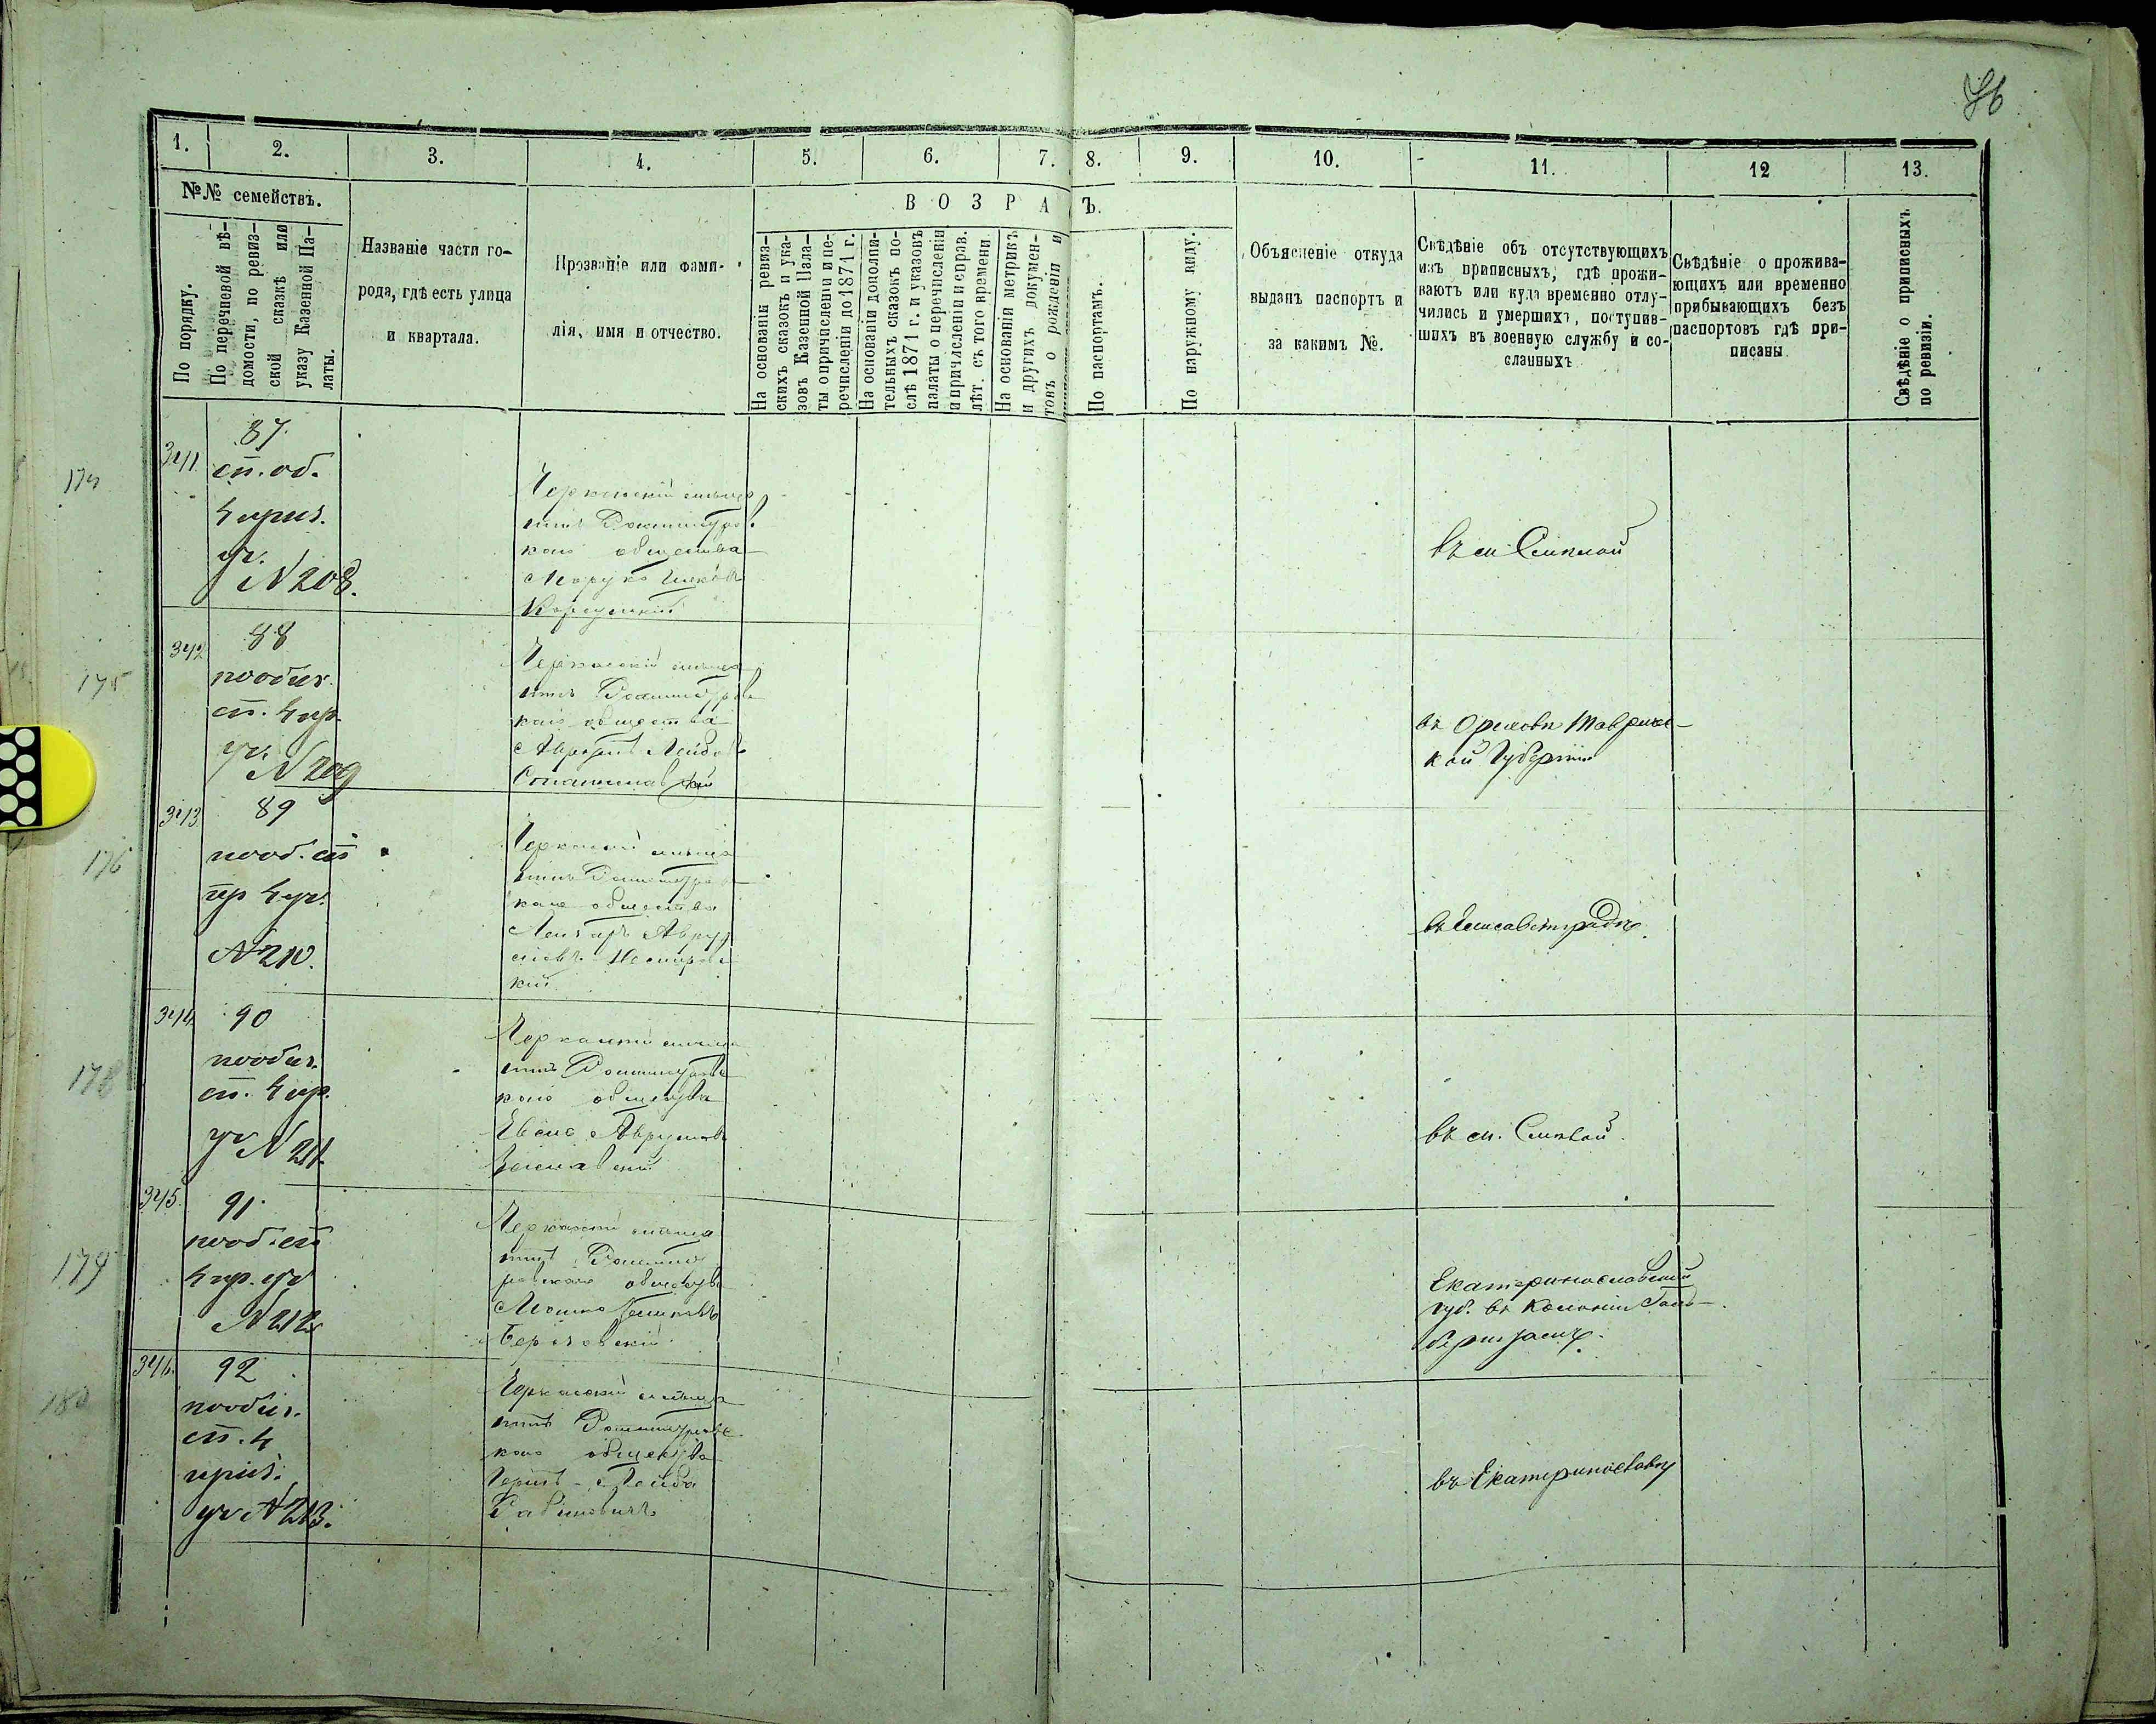 46
1.
2.
3.
4.
5.
6.
7.
8.
9.
10.
11.
12
13.
№№ семействъ.
По порядку.
По перечневой вѣ-
домости, по ревиз-
ской сказкѣ или
указу Казенной Па-
латы.
Названіе части го-
рода, гдѣ есть улица
и квартала.
Прозваніе или фами-
лія, имя и отчество.
ВОЗРАСТЪ.
На основаніи ревиз-
скихъ сказокъ и ука-
зовъ Казенной Пала-
ты о причисленіи и пе-
речисленіи до 1871 г.
На основаніи дополни-
тельныхъ сказокъ по-
слѣ 1871 г. и указовъ
палаты о перечисленіи
и причисленіи и справ.
лѣт. съ того времени.
На основаніи метрикъ
и другихъ докумен-
товъ о рожденіи и
По паспортамъ.
По наружному виду.
Объясненіе откуда
выданъ паспортъ и
за какимъ №.
Свѣдѣніе объ отсутствующихъ
изъ приписныхъ, гдѣ прожи-
ваютъ или куда временно отлу-
чились и умершихъ, поступив-
шихъ въ военную службу и со-
сланныхъ
Свѣдѣніе о прожива-
ющихъ или временно
прибывающихъ безъ
паспортовъ гдѣ при-
писаны
Свѣдѣніе о приписныхъ
по ревизіи.
174
341.
87
сп. об.
4 приз.
уч.
N 208.
Черкаскій мѣща
нинъ Ротмистров
каго общества
въ м. Смѣлой
175
342
88
пообиз.
сп. 4 пр.
уч. N 209
Черкаскій мѣща
нинъ Ротмистровс
каго общества
въ Орѣховѣ Тавричес-
кой Губерніи
176
343
89
пооб. сп
пр 4 уч.
N 210.
Черкаскій мѣща
нинъ Ротмистровс
каго общества
Немировс
кій
въ Елисаветградѣ
178
344
90
пообиз.
сп. 4 пр.
уч N 211.
Черкаскій мѣща
нинъ Ротмистровс
каго общества
Заславскій
въ м. Смѣлой
179
345.
91.
пооб. сп
4 пр. уч
N 212
Черкаскій мѣща
нинъ Ротмист
ровскаго общества
Мошко
Березовскій
Екатеринославской
губ. въ Колоніи
180
346.
92
пообиз.
сп. 4
приз.
уч N 213.
Черкаскій мѣща
нинъ Ротмистровс
каго общества
Герш-Лейба
Рабиновичъ
въ Екатеринославѣ